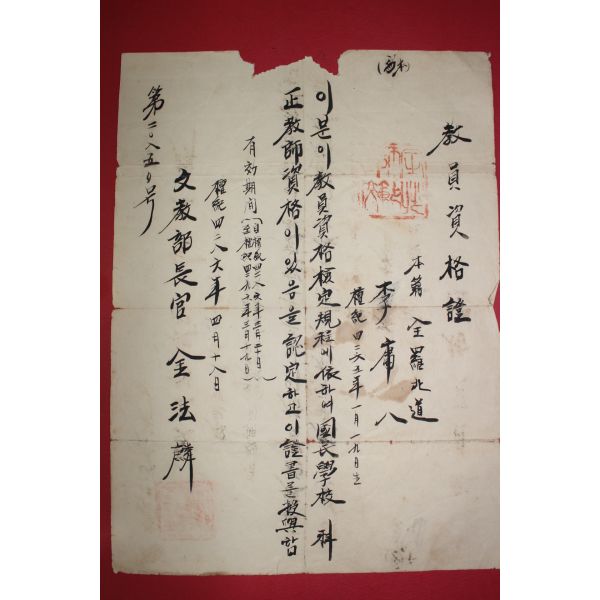 教員資格證
本籍 全羅北道
李 庸 八
檀紀四二六五年 一月一九日生
이분이教員資格檢定規程에依하여國民學校 科
正教師資格이있음을認定하고이證書를授與함
有効期间(自檀紀四二八六年三月二十日
至檀紀四二九六年三月十九日)
檀紀四二八六年 四月十八日
文教部長官 金法麟
第二〇八五〇号